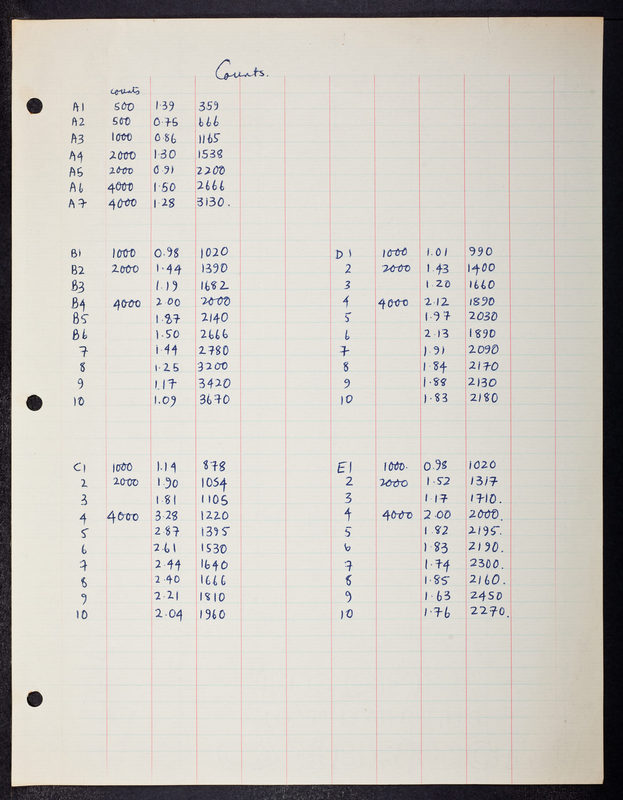 Counts.
counts
A1 500 1·39 359
A2 500 0·75 666
A3 1000 0·86 1165
A4 2000 1·30 1538
A5 2000 0·91 2200
A6 4000 1·50 2666
A7 4000 1·28 3130.
B1 1000 0·98 1020
B2 2000 1·44 1390
B3 1·19 1682
B4 4000 2·00 2000
B5 1·87 2140
B6 1·50 2666
7 1·44 2780
8 1·25 3200
9 1·17 3420
10 1·09 3670
D1 1000 1·01 990
2 2000 1·43 1400
3 1·20 1660
4 4000 2·12 1890
5 1·97 2030
6 2·13 1890
7 1·91 2090
8 1·84 2170
9 1·88 2130
10 1·83 2180
C1 1000 1·14 878
2 2000 1·90 1054
3 1·81 1105
4 4000 3·28 1220
5 2·87 1395
6 2·61 1530
7 2·44 1640
8 2·40 1666
9 2·21 1810
10 2·04 1960
E1 1000· 0·98 1020
2 2000 1·52 1317
3 1·17 1710.
4 4000 2·00 2000.
5 1·82 2195.
6 1·83 2190.
7 1·74 2300.
8 1·85 2160.
9 1·63 2450
10 1·76 2270.